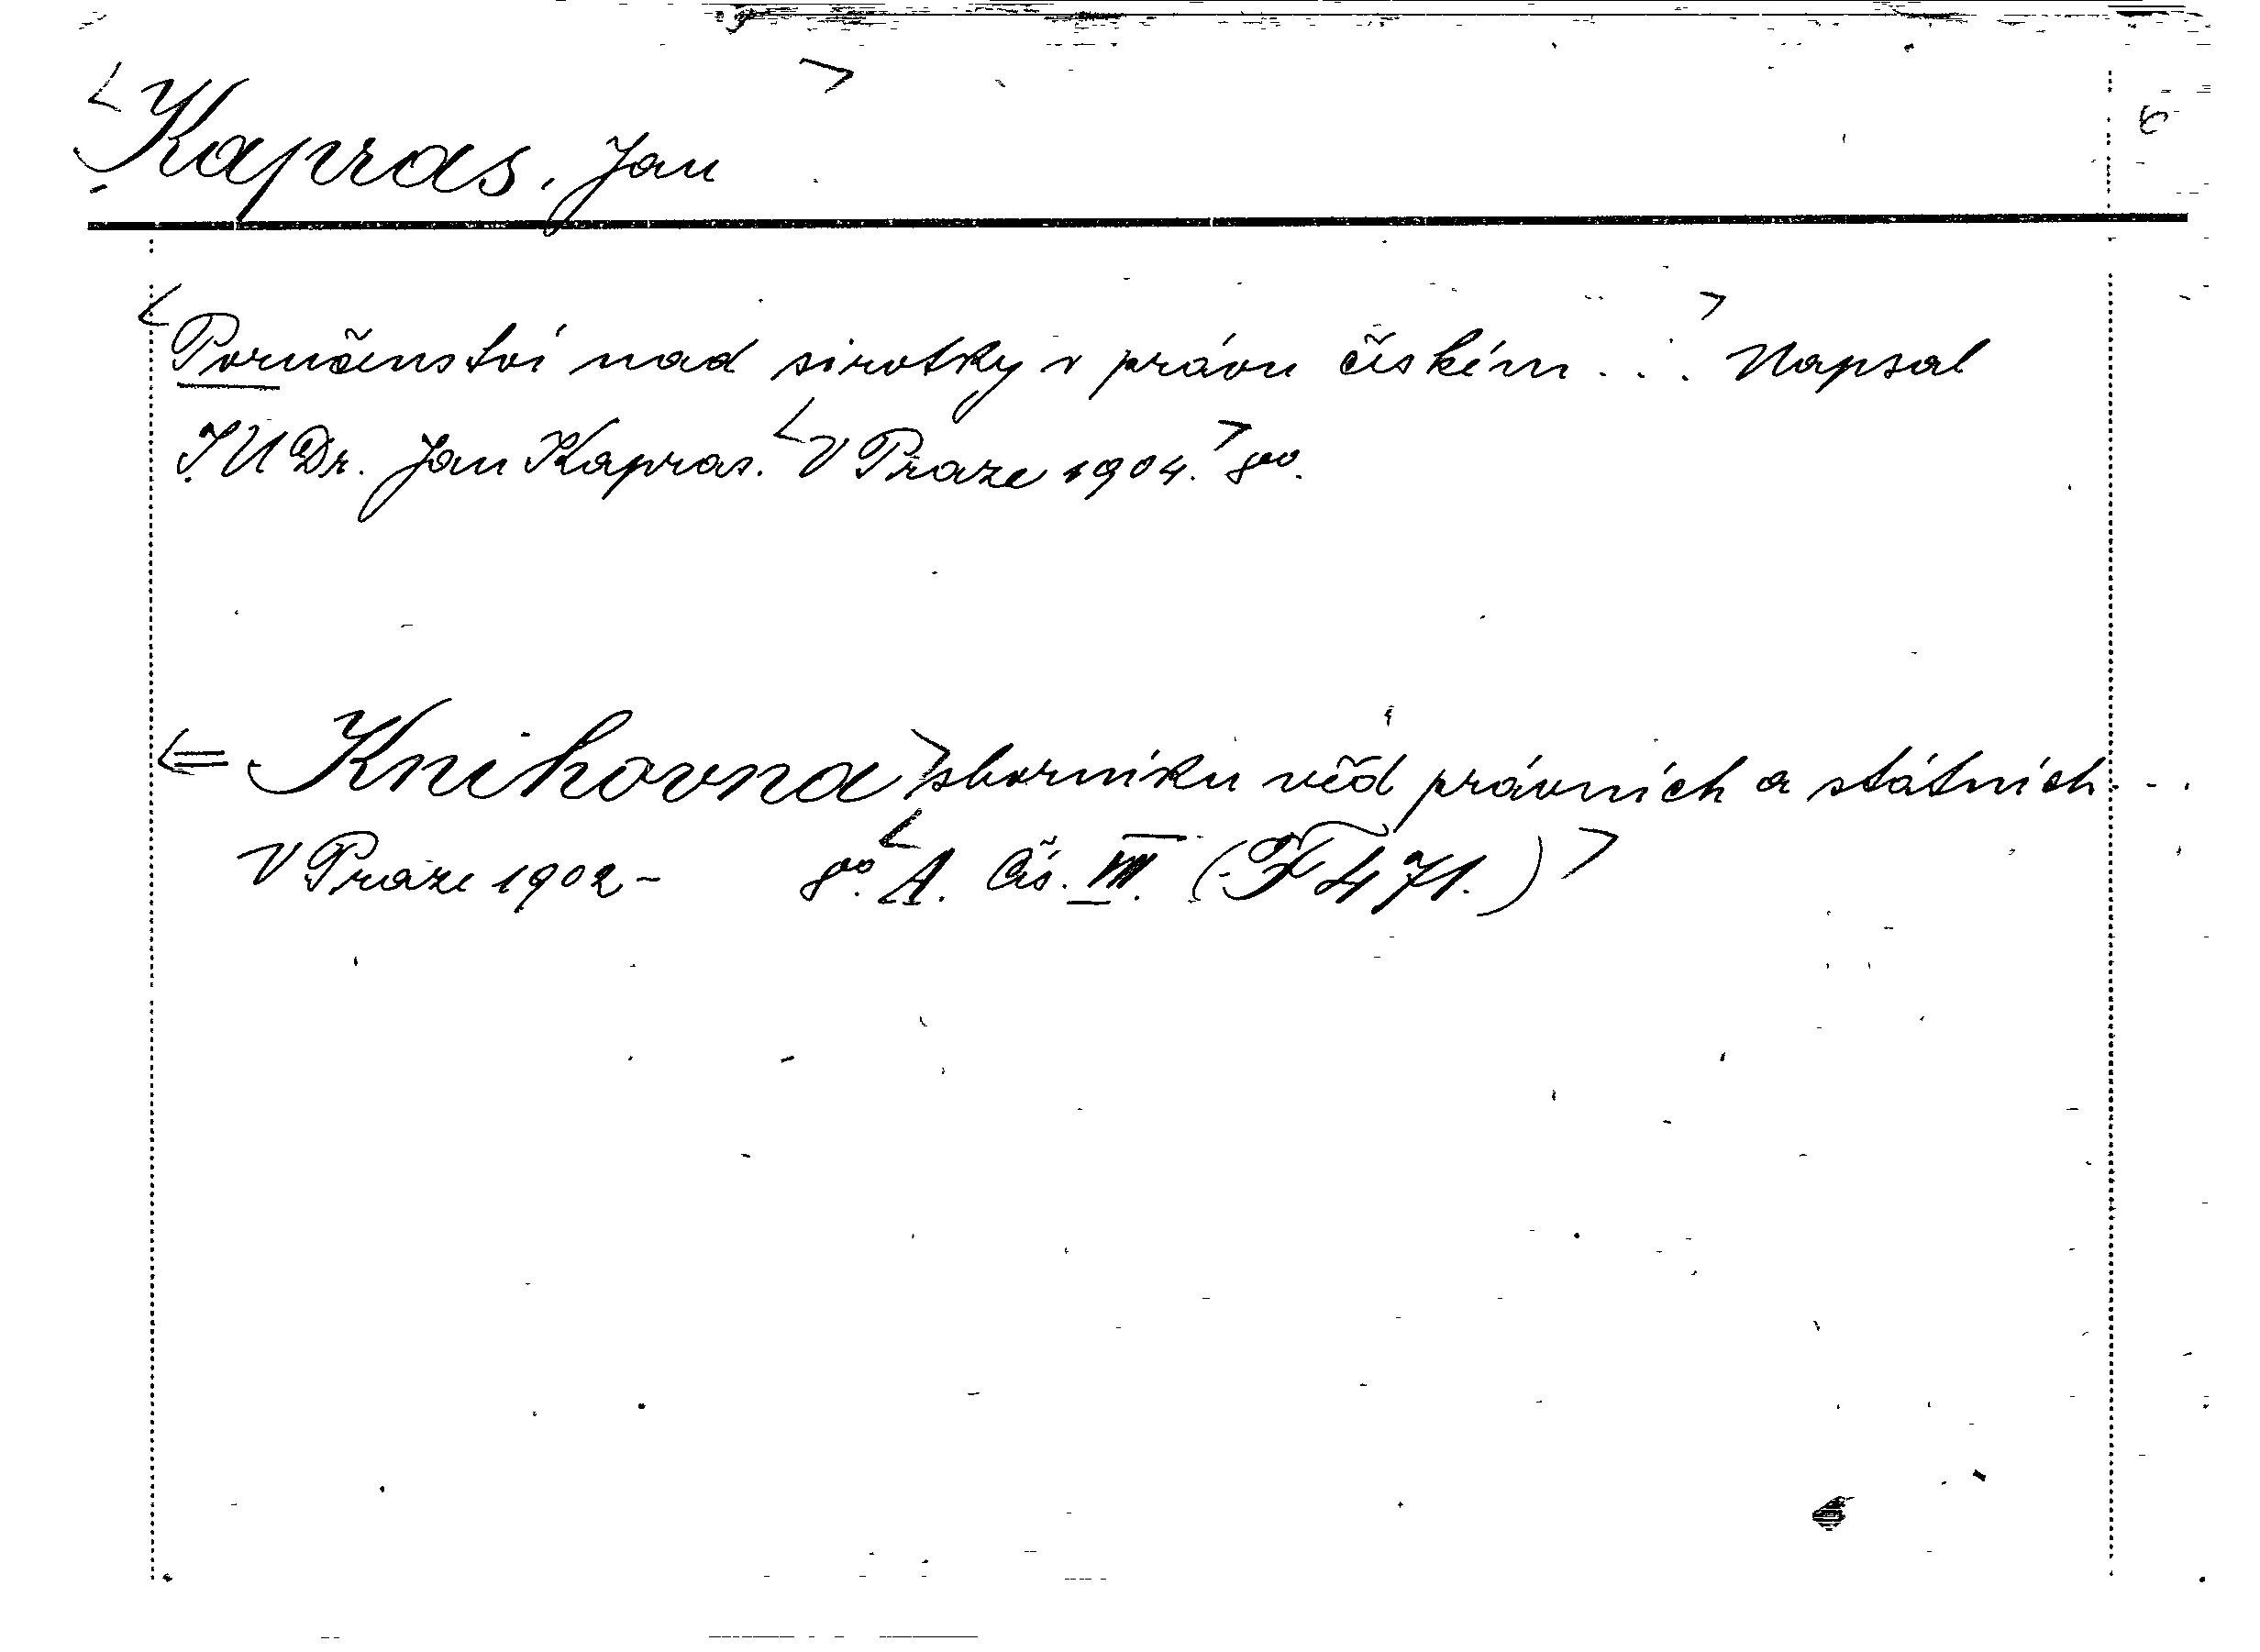 <Kapras, Jan>
<Poručenství nad sirotky v právu českém . . .> Napsal
JUDr. Jan Kapras. <V Praze 1904.> 8vo.
<= Knihovna> sborníku věd právních a státních . . .
V Praze 1902 - 8vo. <A. Čís. VIII. (F 471.)>